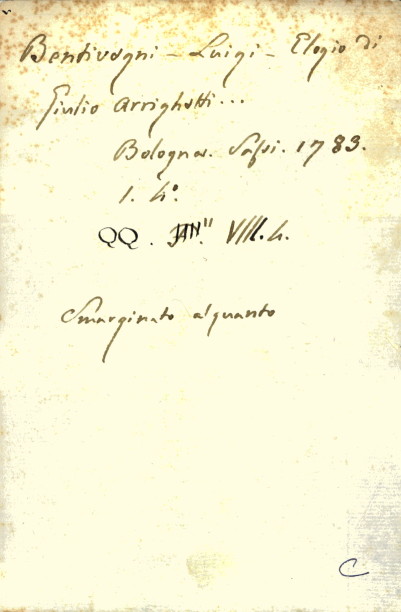 Bentivogni - Luigi - Elogio di
Giulio Arrighetti...
Bologna. Sassi. 1783.
1. 4°.
QQ. VIII. 4.
Smarginato alquanto
C